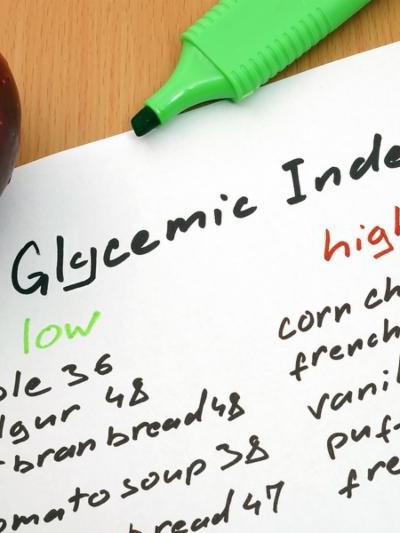 Glycemic Inde
low
high
ple 36
lgur 48
bran bread 48
omato soup 38
bread 47
corn ch
french
vanil
puf
fre